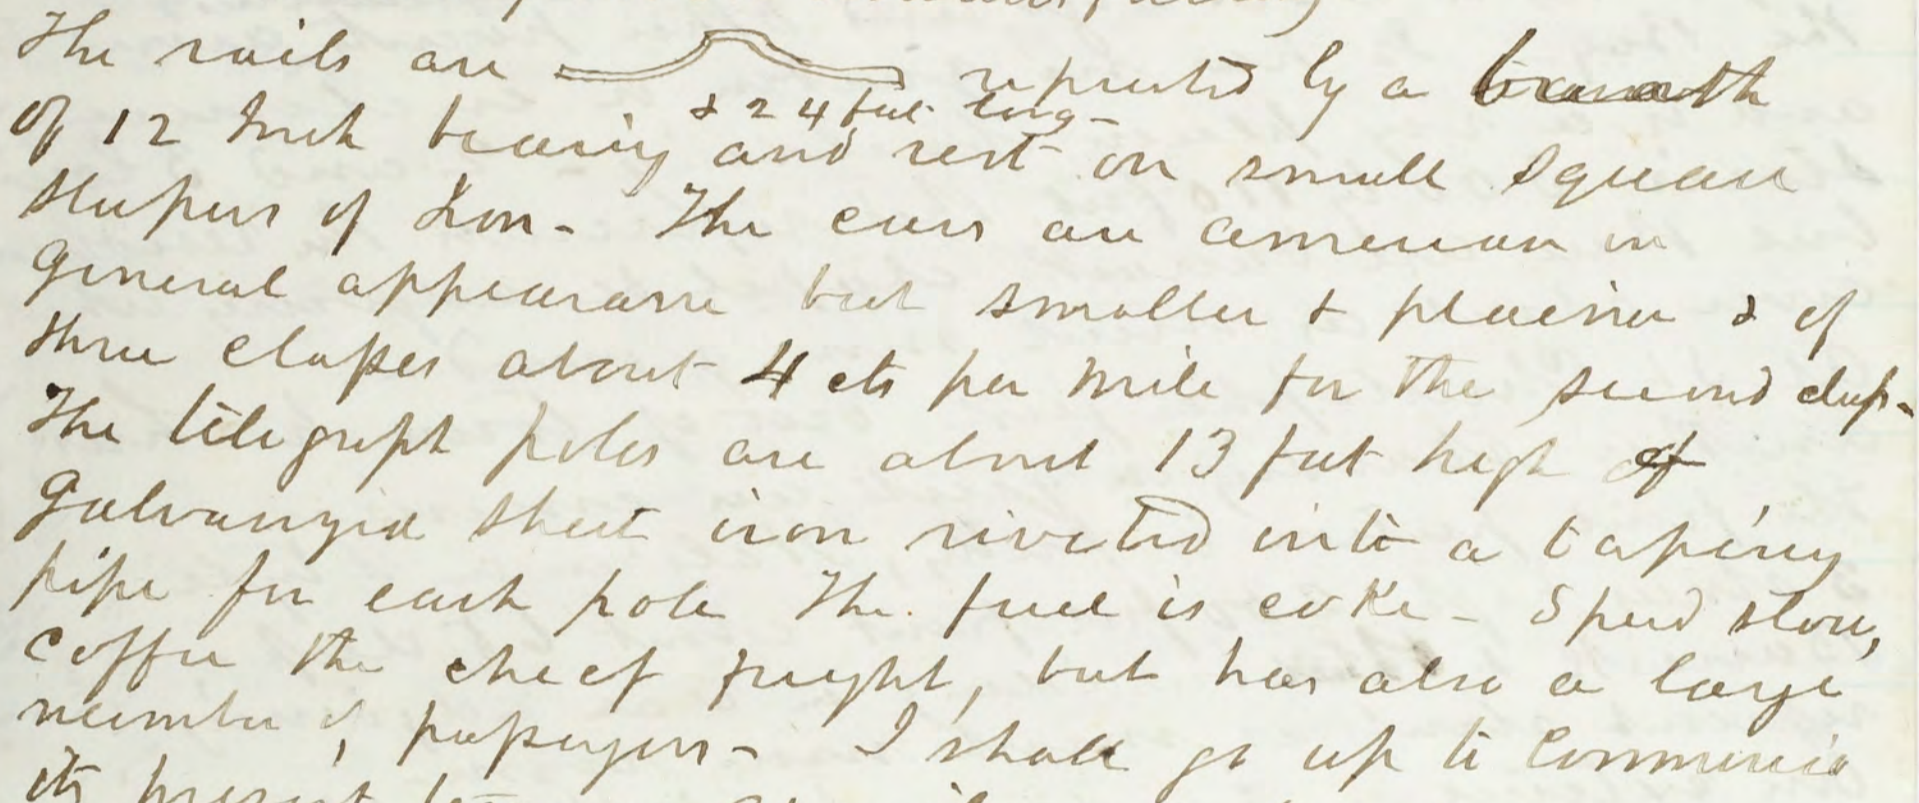 The rails are repeated by a breadth
& 24 feet long-
of 12 Inch bearing and rest on small square
sleepers of Iron - The cars are american in
General appearance but smaller & plainer & of
three classes about 4 cts per mile for the second class-
The telegraph poles are about 13 feet high of
Galvanized sheet iron riveted into a tapering
pipe for each pole The fuel is coke - Speed slow,
coffee the cheef freight, but has also a large
number of passengers - I shall go up to Commercio
its present